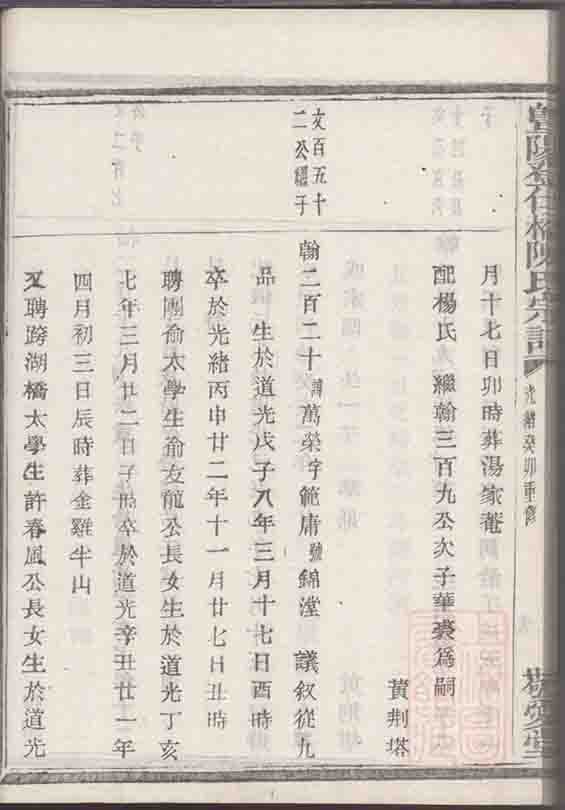 暨陽
橋陳氏宗譜
光緒癸卯重修
月十七日卯時葬湯家菴
配楊氏 繼翰三百九公次子華褒爲嗣
黃荆塔
文百五十
二公繼子
翰二百二十 諱萬榮字範庸號錦瀅 議叙從九
品 生於道光戊子八年三月十七日酉時
卒於光緒丙申廿二年十一月廿七日丑時
聘團俞太學生俞友龍公長女生於道光丁亥
七年三月廿二日子時卒於道光辛丑廿一年
四月初三日辰時葬金雞半山
又聘跨湖橋太學生許春風公長女生於道光